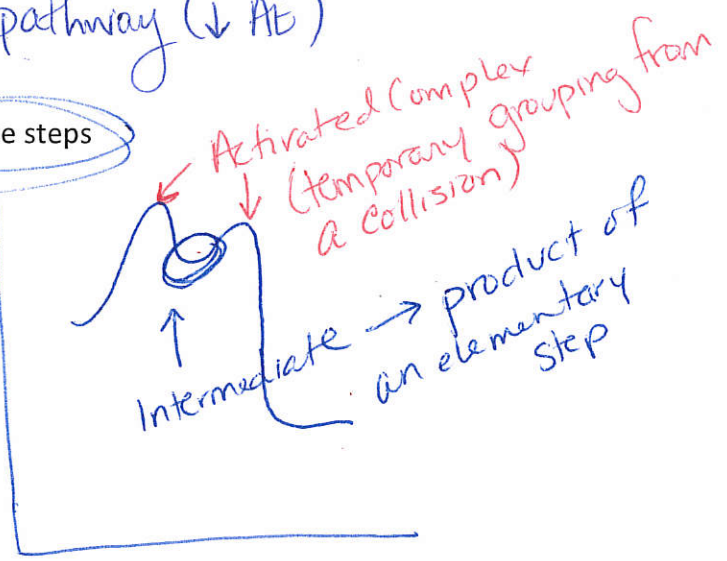 pathway (↓ AE)
e steps
Activated Complex
(temporary grouping from
a collision)
Intermediate → product of
an elementary
step